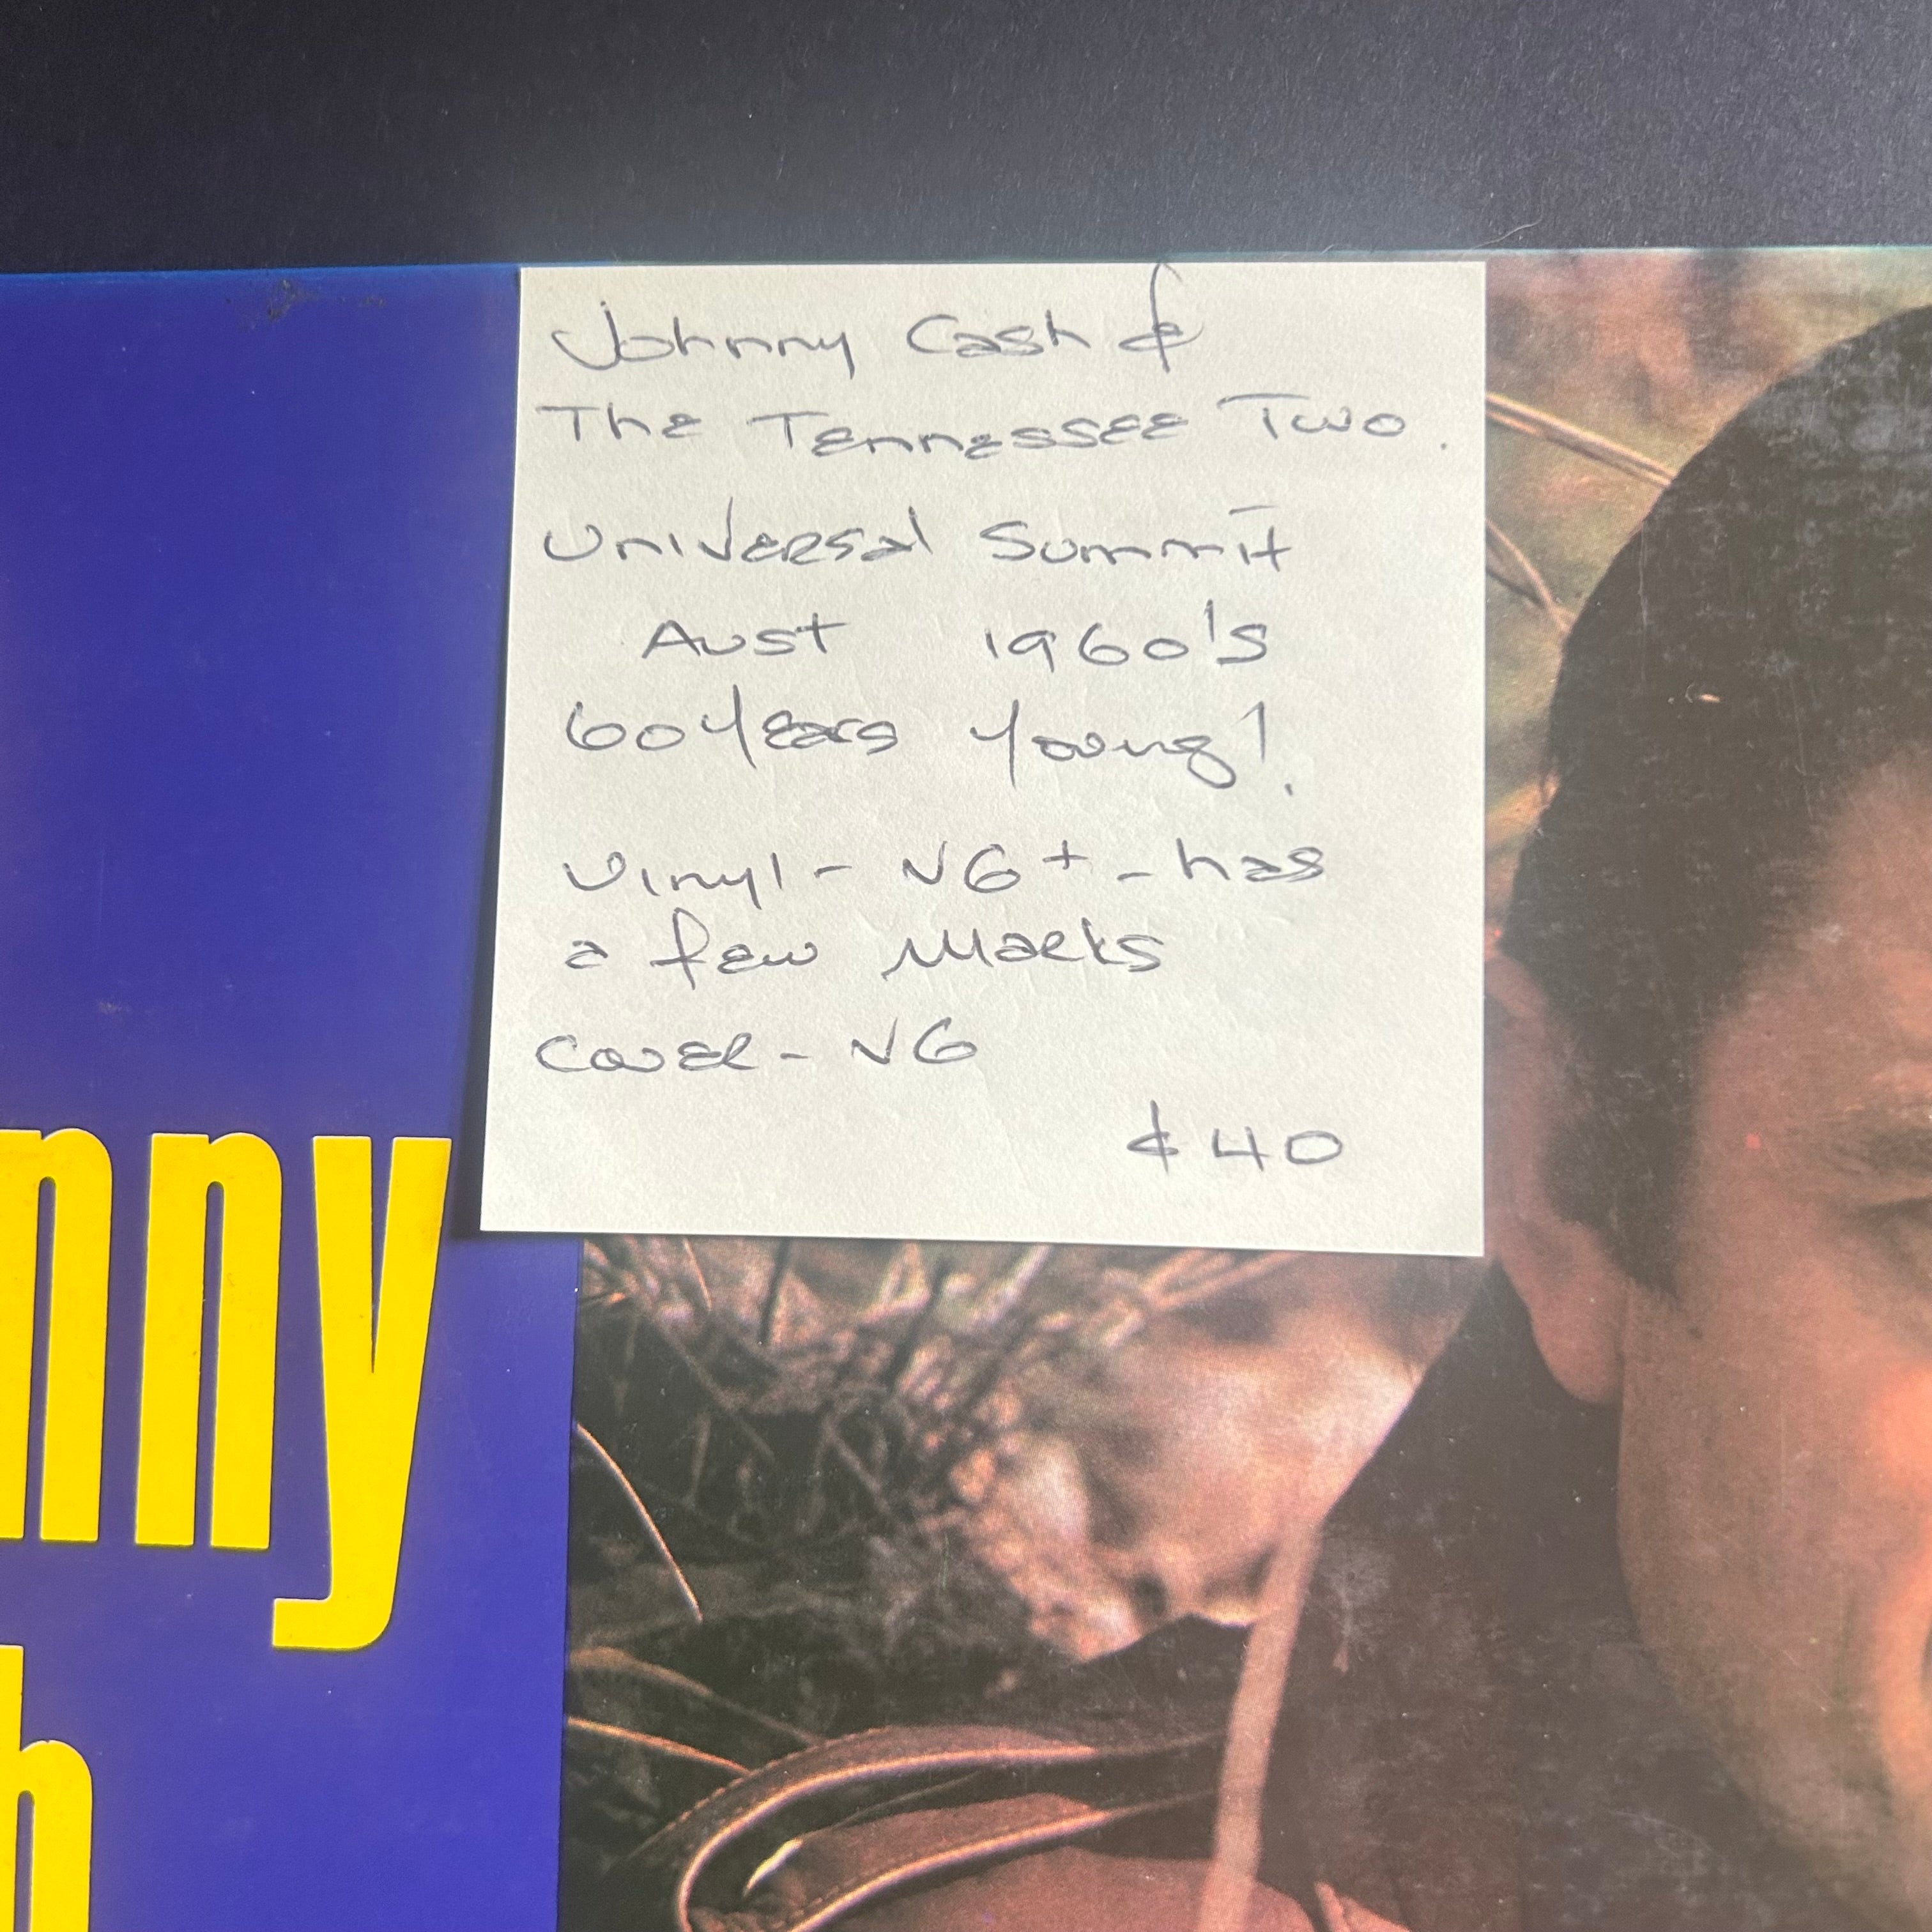 Johnny Cash &
The Tennessee Two.
Universal Summit
Aust 1960's
60 Years Young!
Vinyl - VG + - has
a few Marks
Cover - VG
$40
nny
h